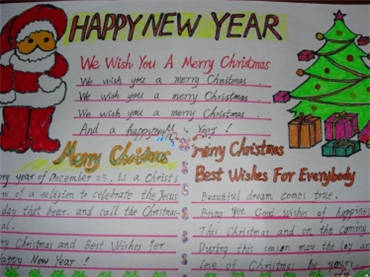 HAPPY NEW YEAR
We Wish You A Merry Christmas
We wish you a merry Christmas
We wish you a merry Christmas.
We wish you a merry Christmas.
And a happy Years!
Merry Christmas
ery year of December 25, is a Christ
w of a religion to celebrate the Jesus
day that hear, and call the Christmas-
al.
y Christmas and Best Wishes for
appy New Year!
merry Christmas
Best Wishes For Everybody
Beautiful dream comes true.
Bring you Good Wishes of happine
This Christmas and on the coming
During this season may the joy an
love of Christmas be yours